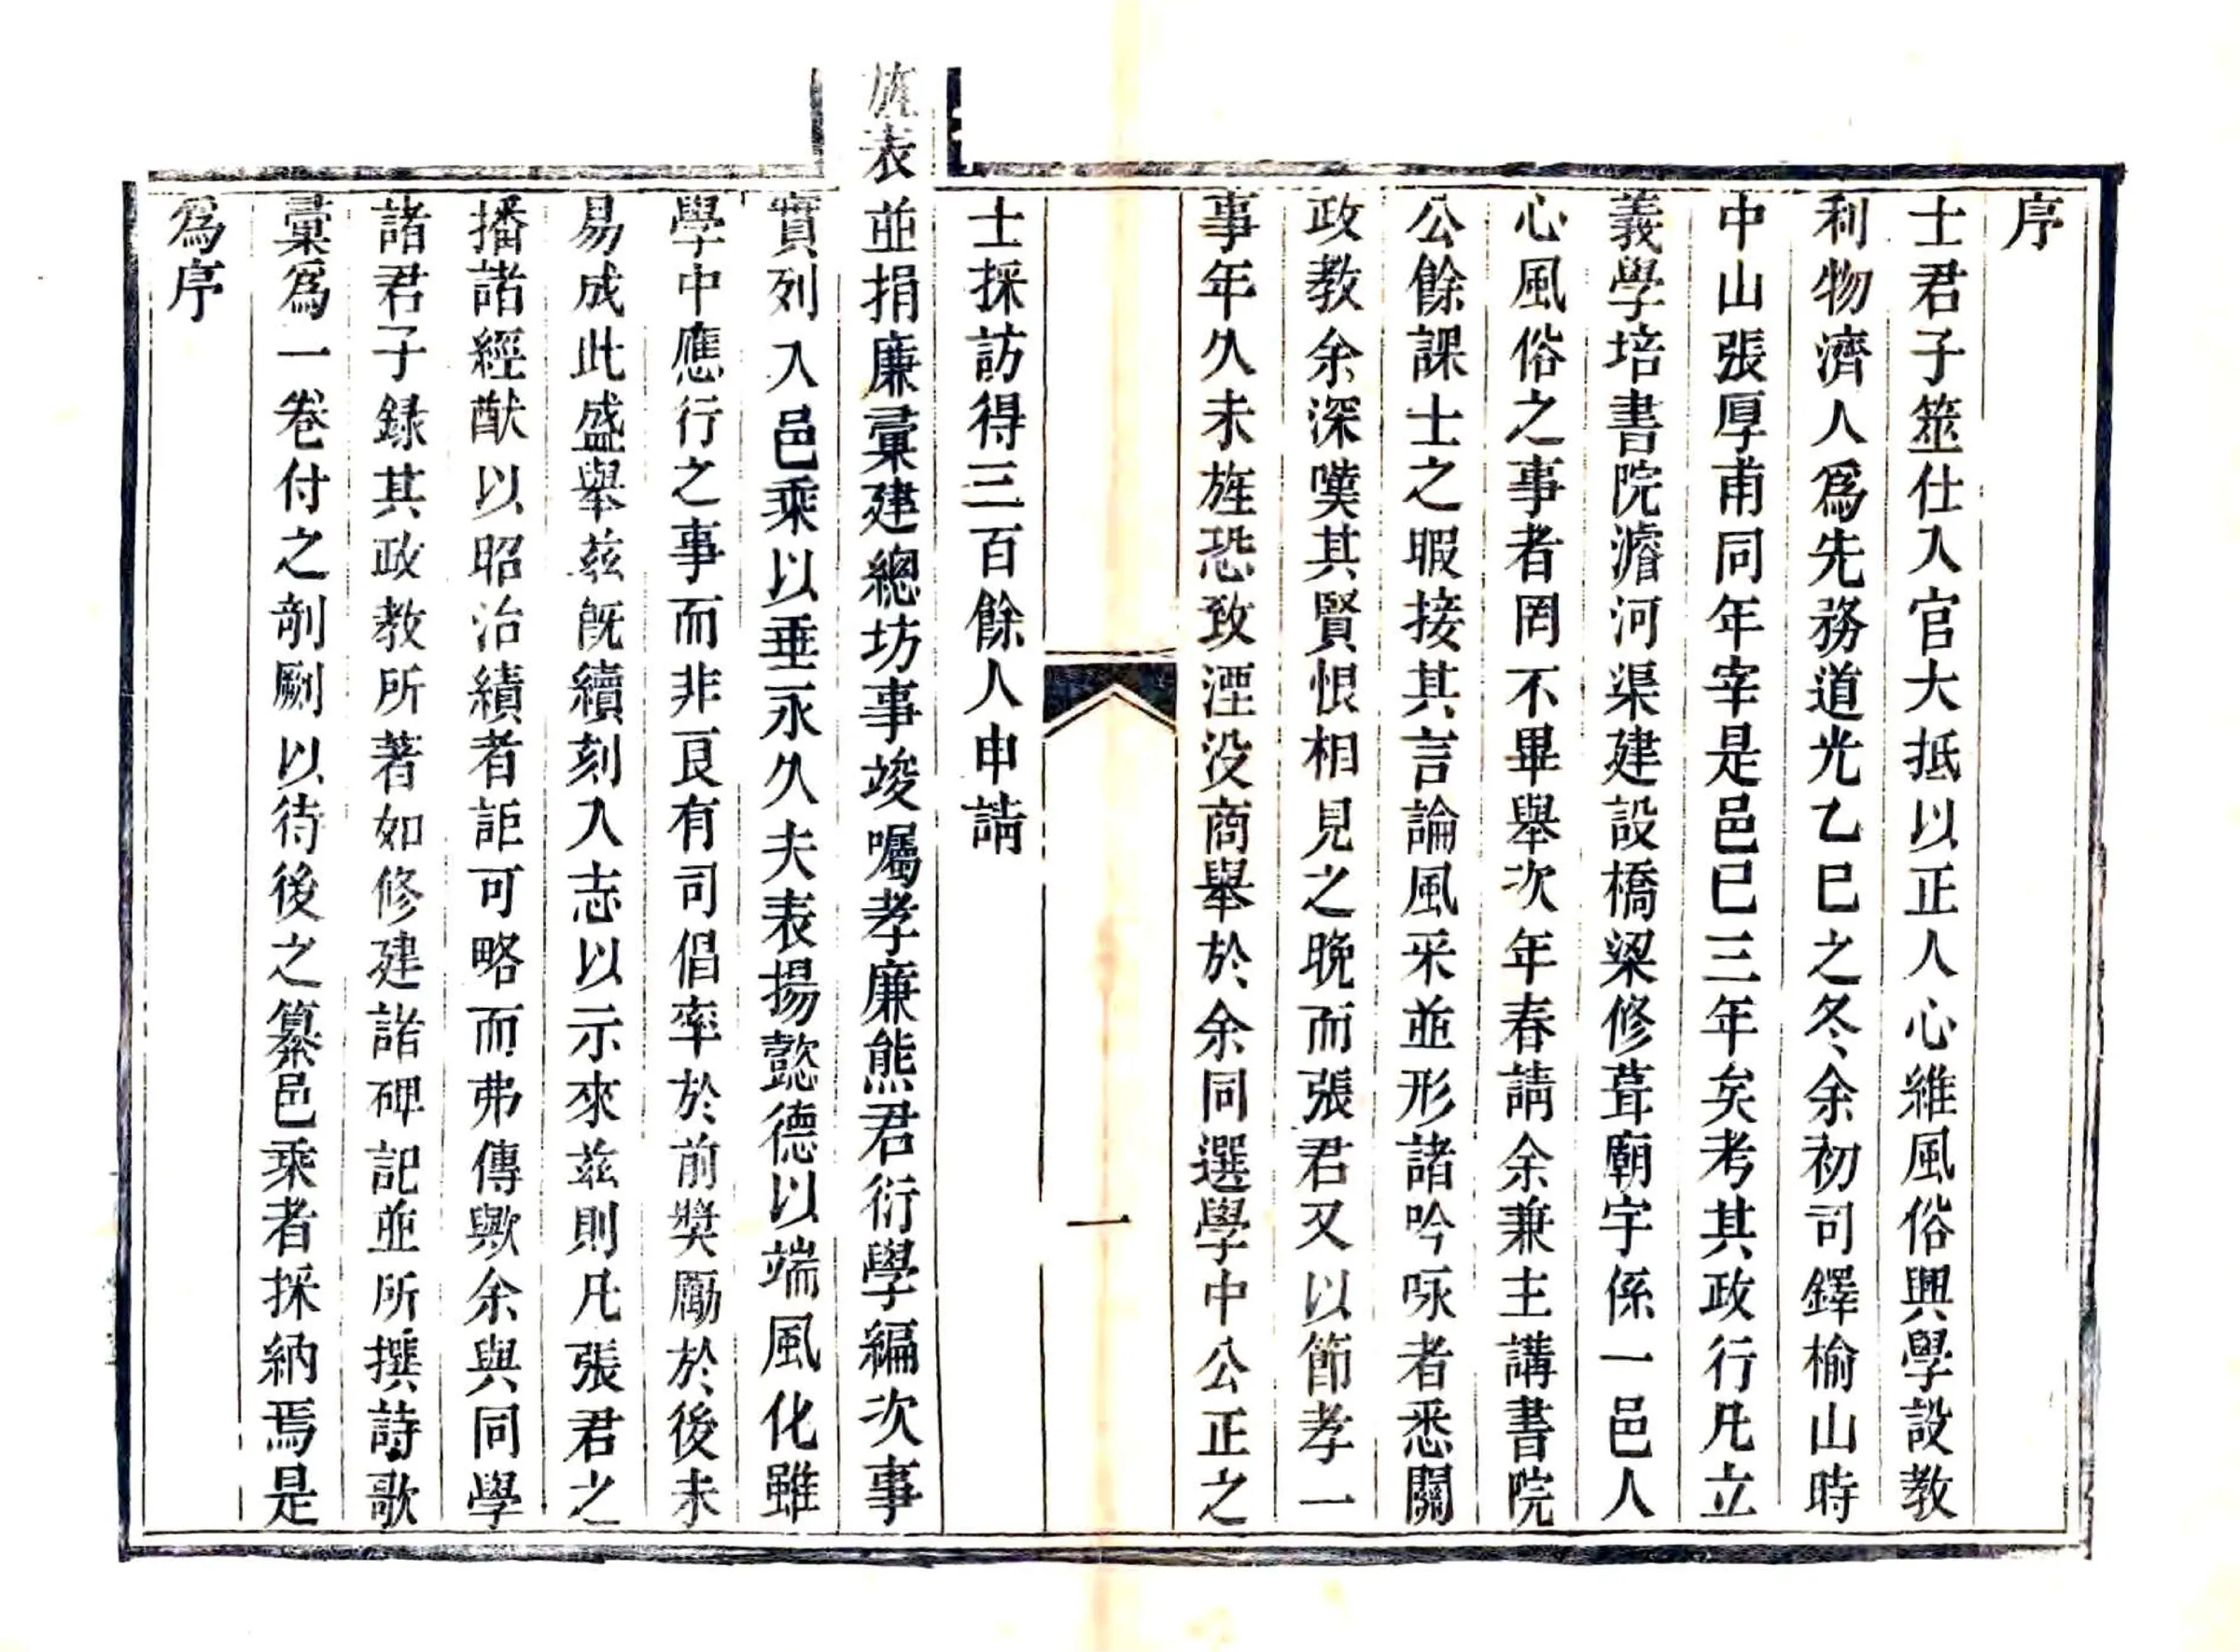 序
士君子筮仕入官大抵以正人心維風俗興學設教
利物濟人爲先務道光乙巳之冬余初司鐸榆山時
中山張厚甫同年宰是邑已三年矣考其政行凡立
義學培書院濬河渠建設橋梁修葺廟宇係一邑人
心風俗之事者罔不畢舉次年春請余兼主講書院
公餘課士之暇接其言論風采並形諸吟咏者悉關
政教余深嘆其賢恨相見之晚而張君又以節孝一
事年久未旌恐致湮没商舉於余同選學中公正之
一
士採訪得三百餘人申請
旌表並捐廉彙建總坊事竣囑孝廉熊君衍學編次事
實列入邑乘以垂永久夫表揚懿德以端風化雖
學中應行之事而非良有司倡率於前奬勵於後未
易成此盛舉兹既續刻入志以示來兹則凡張君之
播諸經猷以昭治績者詎可略而弗傳歟余與同學
諸君子録其政教所著如修建諸碑記並所撰詩歌
彙爲一卷付之剞劂以待後之纂邑乘者採納焉是
爲序